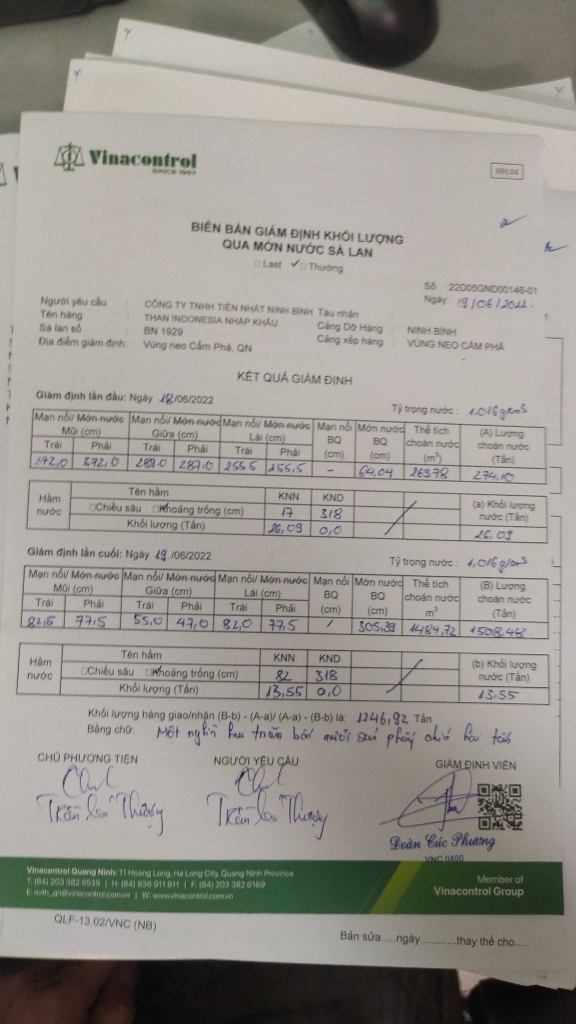 Vinacontrol
SINCE 1957
HH.04
BIÊN BẢN GIÁM ĐỊNH KHỐI LƯỢNG
QUA MỚN NƯỚC SÀ LAN
□ Last ✓□ Thường
Số 22D05GND00146-01
Ngày: 19/06/2022.
Người yêu cầu : CÔNG TY TNHH TIẾN NHẤT NINH BÌNH Tàu nhận :
Tên hàng : THAN INDONESIA NHẬP KHẨU Cảng Dỡ Hàng : NINH BÌNH
Sà lan số : BN 1929 Cảng xếp hàng : VÙNG NEO CẨM PHẢ
Địa điểm giám định: Vùng neo Cẩm Phả, QN
KẾT QUẢ GIÁM ĐỊNH
Giám định lần đầu: Ngày 18/06/2022 Tỷ trọng nước : 1,016 g/cm³
Mạn nổi/ Mớn nước Mũi (cm) Mạn nổi/ Mớn nước Giữa (cm) Mạn nổi/ Mớn nước Lái (cm) Mạn nổi BQ (cm) Mớn nước BQ (cm) Thể tích choán nước (m³) (A) Lượng choán nước (Tấn)
Trái Phải Trái Phải Trái Phải
372,0 372,0 287,0 287,0 255,5 255,5 - 64,04 269,78 274,10
Hầm nước Tên hầm KNN KND (a) Khối lượng nước (Tấn)
□Chiều sâu □Khoảng trống (cm) 17 318
Khối lượng (Tấn) 26,09 0,0 26,09
Giám định lần cuối: Ngày 19 /06/2022 Tỷ trọng nước : 1,016 g/cm³
Mạn nổi/ Mớn nước Mũi (cm) Mạn nổi/ Mớn nước Giữa (cm) Mạn nổi/ Mớn nước Lái (cm) Mạn nổi BQ (cm) Mớn nước BQ (cm) Thể tích choán nước m³ (B) Lượng choán nước (Tấn)
Trái Phải Trái Phải Trái Phải
82,5 77,5 55,0 47,0 82,0 77,5 / 305,39 1484,72 1508,48
Hầm nước Tên hầm KNN KND (b) Khối lượng nước (Tấn)
□Chiều sâu □Khoảng trống (cm) 82 318
Khối lượng (Tấn) 13,55 0,0 13.55
Khối lượng hàng giao/nhận (B-b) - (A-a)/ (A-a) - (B-b) là: 1246,92 Tấn
Bằng chữ: Một nghìn hai trăm bốn mươi sáu phẩy chín hai tấn
CHỦ PHƯƠNG TIỆN NGƯỜI YÊU CẦU GIÁM ĐỊNH VIÊN
Đoàn Cúc Phương
VNC 0400
Vinacontrol Quang Ninh: 11 Hoang Long, Ha Long City, Quang Ninh Province
T: (84) 203 382 5535 | H: (84) 936 911 811 | F: (84) 203 382 6169
Member of
Vinacontrol Group
QLF-13.02/VNC (NB)
Bản sửa.....ngày............thay thế cho.....